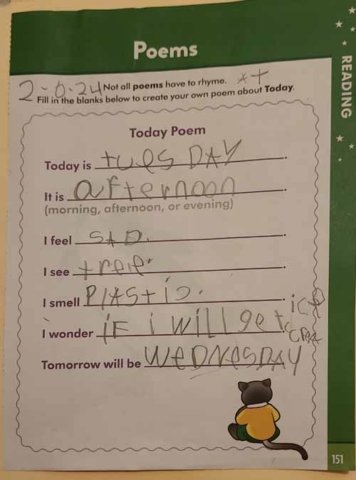 Poems
READING
2-6-24 Not all poems have to rhyme.
Fill in the blanks below to create your own poem about Today.
Today Poem
Today is tuesDAY.
It is afternoon.
(morning, afternoon, or evening)
I feel SAD.
I see treee.
I smell PlAStic.
I wonder iF i will get icе
CReA
Tomorrow will be WeDNesDAY
151